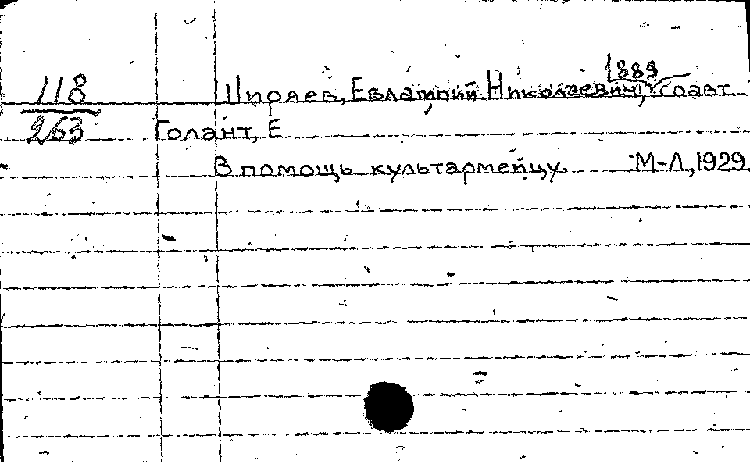 1889
118 Ширяев, Евлампий Николаевич, соавт
263 Голант, Е
В помощь культармейцу. М-Л, 1929